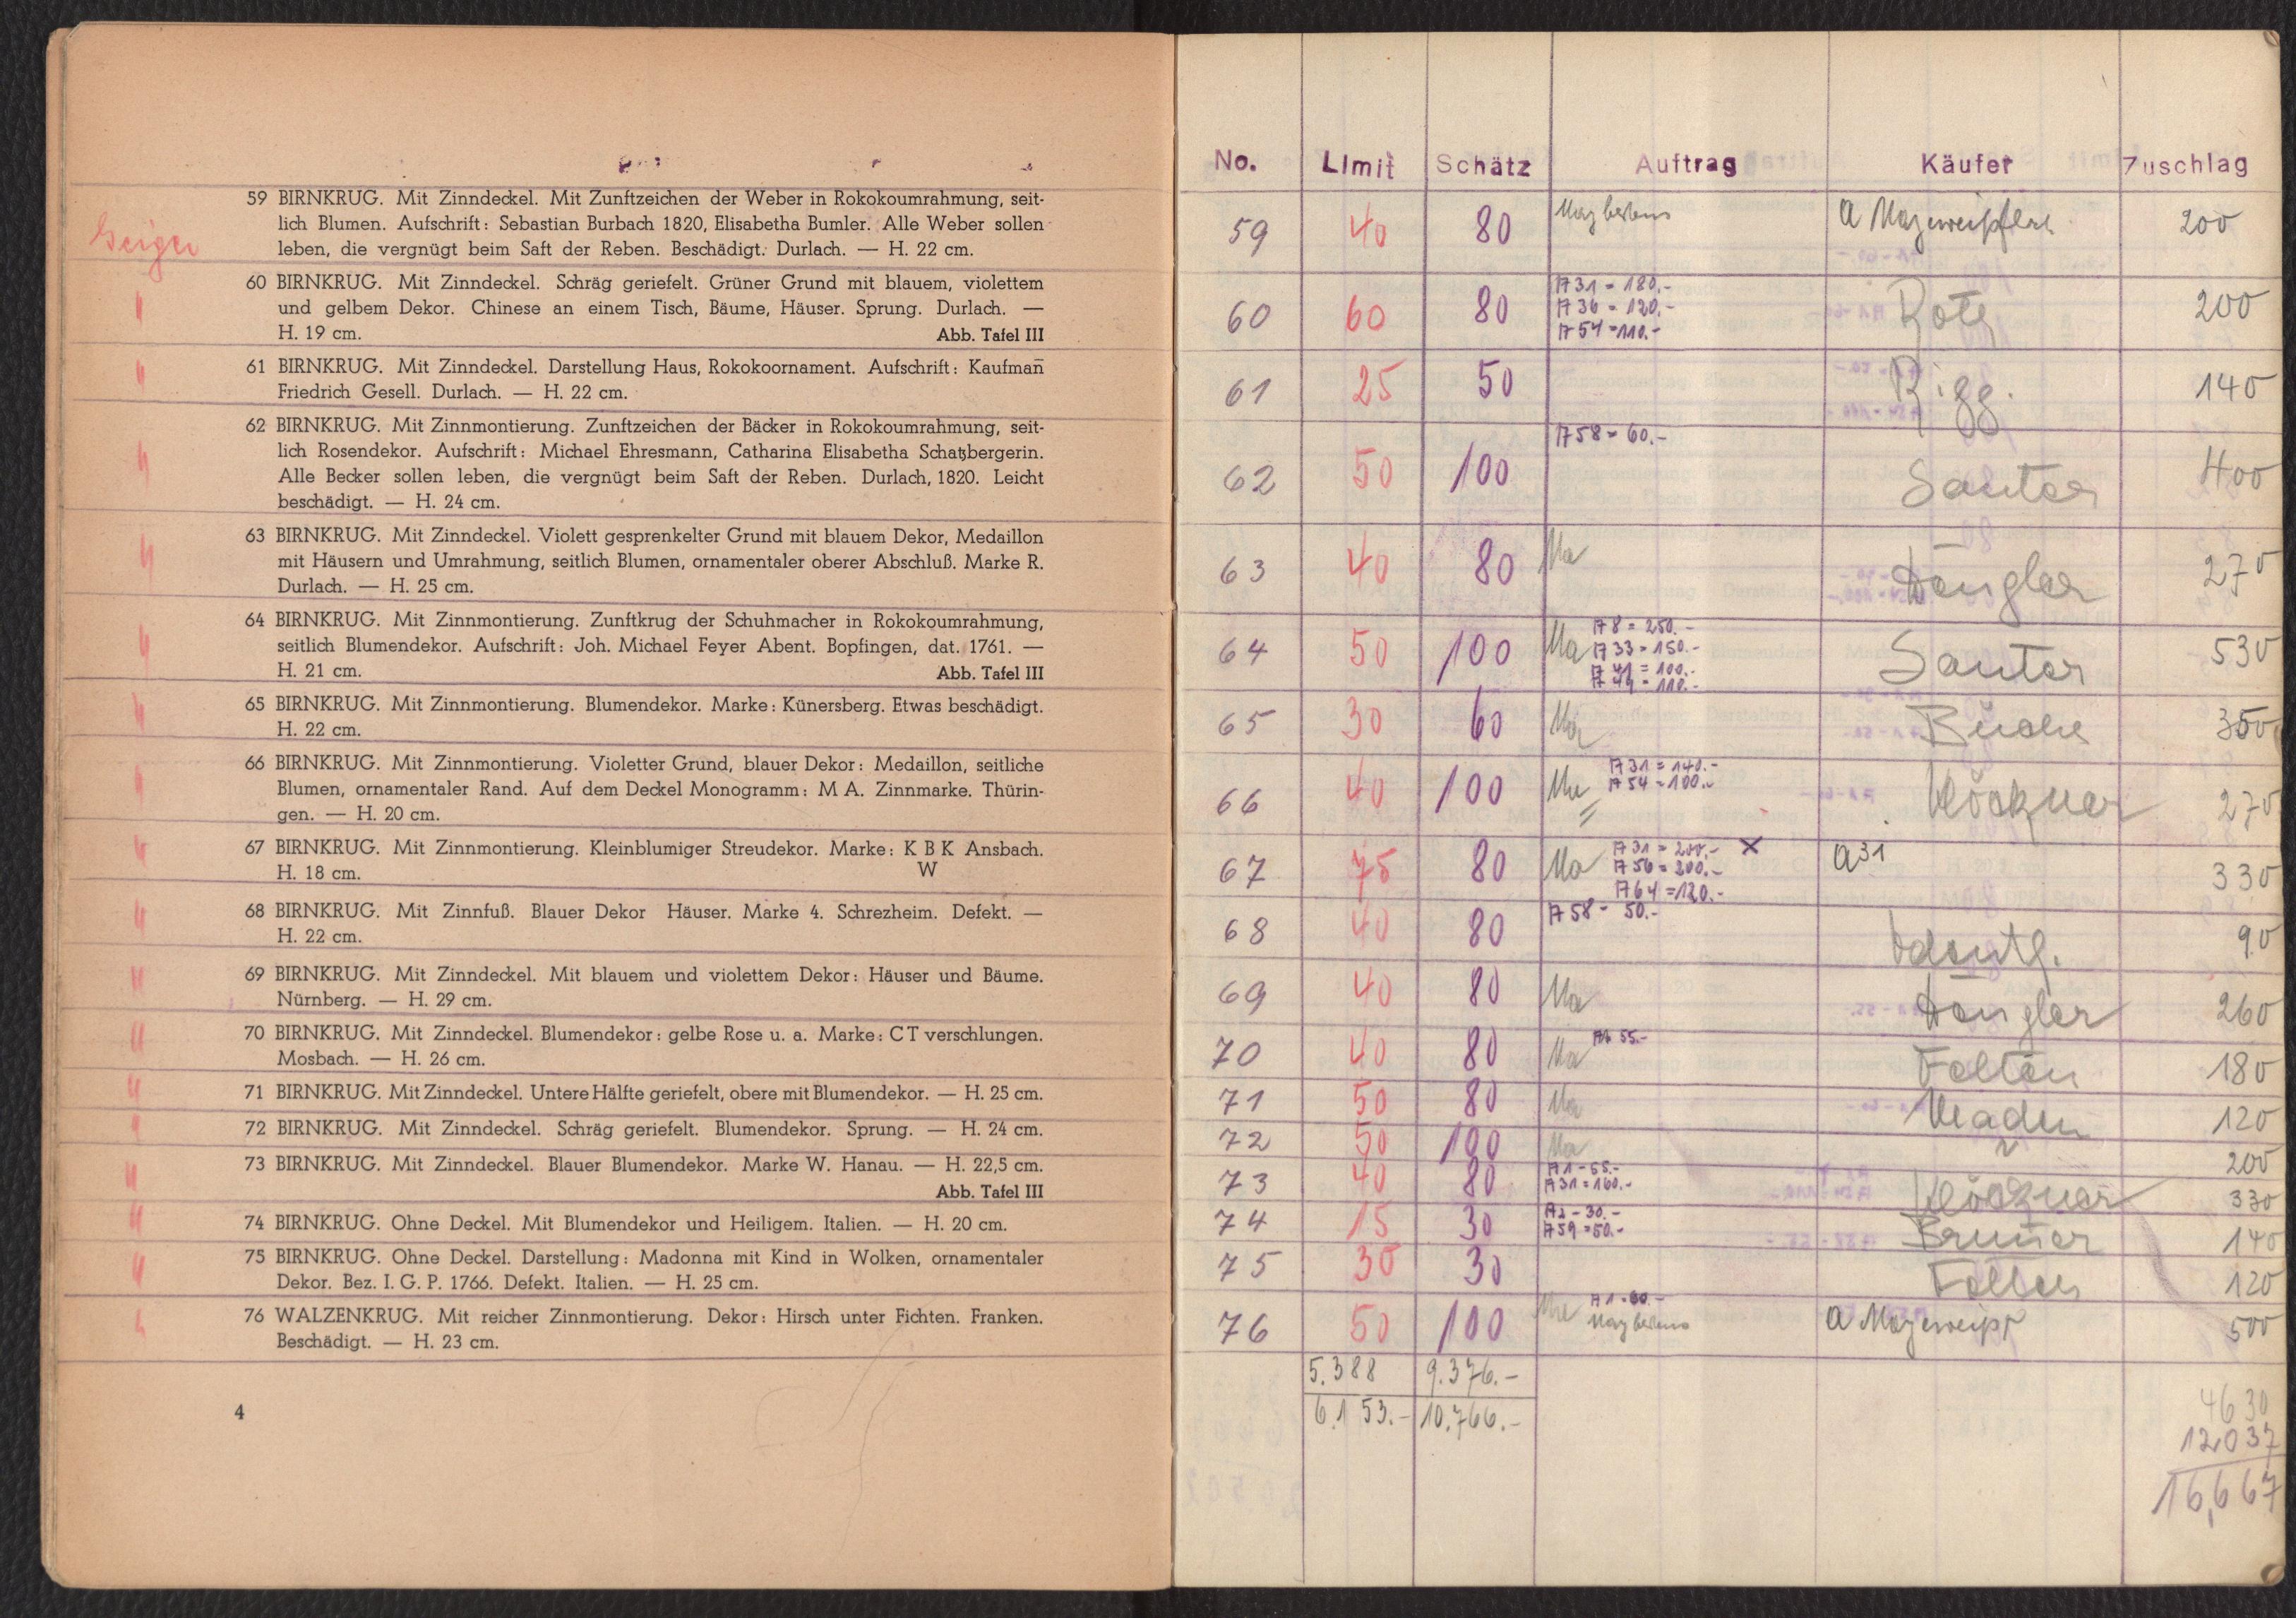 59 BIRNKRUG. Mit Zinndeckel. Mit Zunftzeichen der Weber in Rokokoumrahmung, seit-
lich Blumen. Aufschrift: Sebastian Burbach 1820, Elisabetha Bumler. Alle Weber sollen
leben, die vergnügt beim Saft der Reben. Beschädigt. Durlach. — H. 22 cm.
Geiger
60 BIRNKRUG. Mit Zinndeckel. Schräg geriefelt. Grüner Grund mit blauem, violettem
und gelbem Dekor. Chinese an einem Tisch, Bäume, Häuser. Sprung. Durlach. —
H. 19 cm. Abb. Tafel III
61 BIRNKRUG. Mit Zinndeckel. Darstellung Haus, Rokokoornament. Aufschrift: Kaufman̄
Friedrich Gesell. Durlach. — H. 22 cm.
62 BIRNKRUG. Mit Zinnmontierung. Zunftzeichen der Bäcker in Rokokoumrahmung, seit-
lich Rosendekor. Aufschrift: Michael Ehresmann, Catharina Elisabetha Schatzbergerin.
Alle Becker sollen leben, die vergnügt beim Saft der Reben. Durlach, 1820. Leicht
beschädigt. — H. 24 cm.
63 BIRNKRUG. Mit Zinndeckel. Violett gesprenkelter Grund mit blauem Dekor, Medaillon
mit Häusern und Umrahmung, seitlich Blumen, ornamentaler oberer Abschluß. Marke R.
Durlach. — H. 25 cm.
64 BIRNKRUG. Mit Zinnmontierung. Zunftkrug der Schuhmacher in Rokokoumrahmung,
seitlich Blumendekor. Aufschrift: Joh. Michael Feyer Abent. Bopfingen, dat. 1761. —
H. 21 cm. Abb. Tafel III
65 BIRNKRUG. Mit Zinnmontierung. Blumendekor. Marke: Künersberg. Etwas beschädigt.
H. 22 cm.
66 BIRNKRUG. Mit Zinnmontierung. Violetter Grund, blauer Dekor: Medaillon, seitliche
Blumen, ornamentaler Rand. Auf dem Deckel Monogramm: M A. Zinnmarke. Thürin-
gen. — H. 20 cm.
67 BIRNKRUG. Mit Zinnmontierung. Kleinblumiger Streudekor. Marke: K B K Ansbach.
H. 18 cm. W
68 BIRNKRUG. Mit Zinnfuß. Blauer Dekor Häuser. Marke 4. Schrezheim. Defekt. —
H. 22 cm.
69 BIRNKRUG. Mit Zinndeckel. Mit blauem und violettem Dekor: Häuser und Bäume.
Nürnberg. — H. 29 cm.
70 BIRNKRUG. Mit Zinndeckel. Blumendekor: gelbe Rose u. a. Marke: C T verschlungen.
Mosbach. — H. 26 cm.
71 BIRNKRUG. Mit Zinndeckel. Untere Hälfte geriefelt, obere mit Blumendekor. — H. 25 cm.
72 BIRNKRUG. Mit Zinndeckel. Schräg geriefelt. Blumendekor. Sprung. — H. 24 cm.
73 BIRNKRUG. Mit Zinndeckel. Blauer Blumendekor. Marke W. Hanau. — H. 22,5 cm.
Abb. Tafel III
74 BIRNKRUG. Ohne Deckel. Mit Blumendekor und Heiligem. Italien. — H. 20 cm.
75 BIRNKRUG. Ohne Deckel. Darstellung: Madonna mit Kind in Wolken, ornamentaler
Dekor. Bez. I. G. P. 1766. Defekt. Italien. — H. 25 cm.
76 WALZENKRUG. Mit reicher Zinnmontierung. Dekor: Hirsch unter Fichten. Franken.
Beschädigt. — H. 23 cm.
4
No. Limit Schätz Auftrag Käufer Zuschlag
59 40 80 200
60 60 80 A 31 = 180.- Roth 200
A 36 = 120.-
A 54 = 110.-
61 25 50 Rigg. 140
62 50 100 A 58 = 60.- Sauter 400
63 40 80 Ma Dengler 270
64 50 100 Ma A 8 = 250.- Sauter 530
A 33 = 150.-
A 41 = 100.-
A 44 = 110.-
65 30 60 Ma 350
66 40 100 A 31 = 140.- Klöckner 270
A 54 = 100.-
67 75 80 Ma A 31 = 200.- X A 31 330
A 56 = 200.-
A 64 = 120.-
68 40 80 A 58 - 50.- 90
69 40 80 Ma Dengler 260
70 40 80 Ma 55.- Felten 180
71 50 80 Ma 120
72 50 100 Ma 200
73 40 80 A 1 - 55.- Klöckner 330
A 31 = 160.-
74 15 30 A 2 - 30.- Bruner 140
A 59 = 50.-
75 30 30 Felten 120
76 50 100 A 1 - 60.- 500
5.388 9.376.-
6.153.- 10.766.-
4630
12.037
16,667